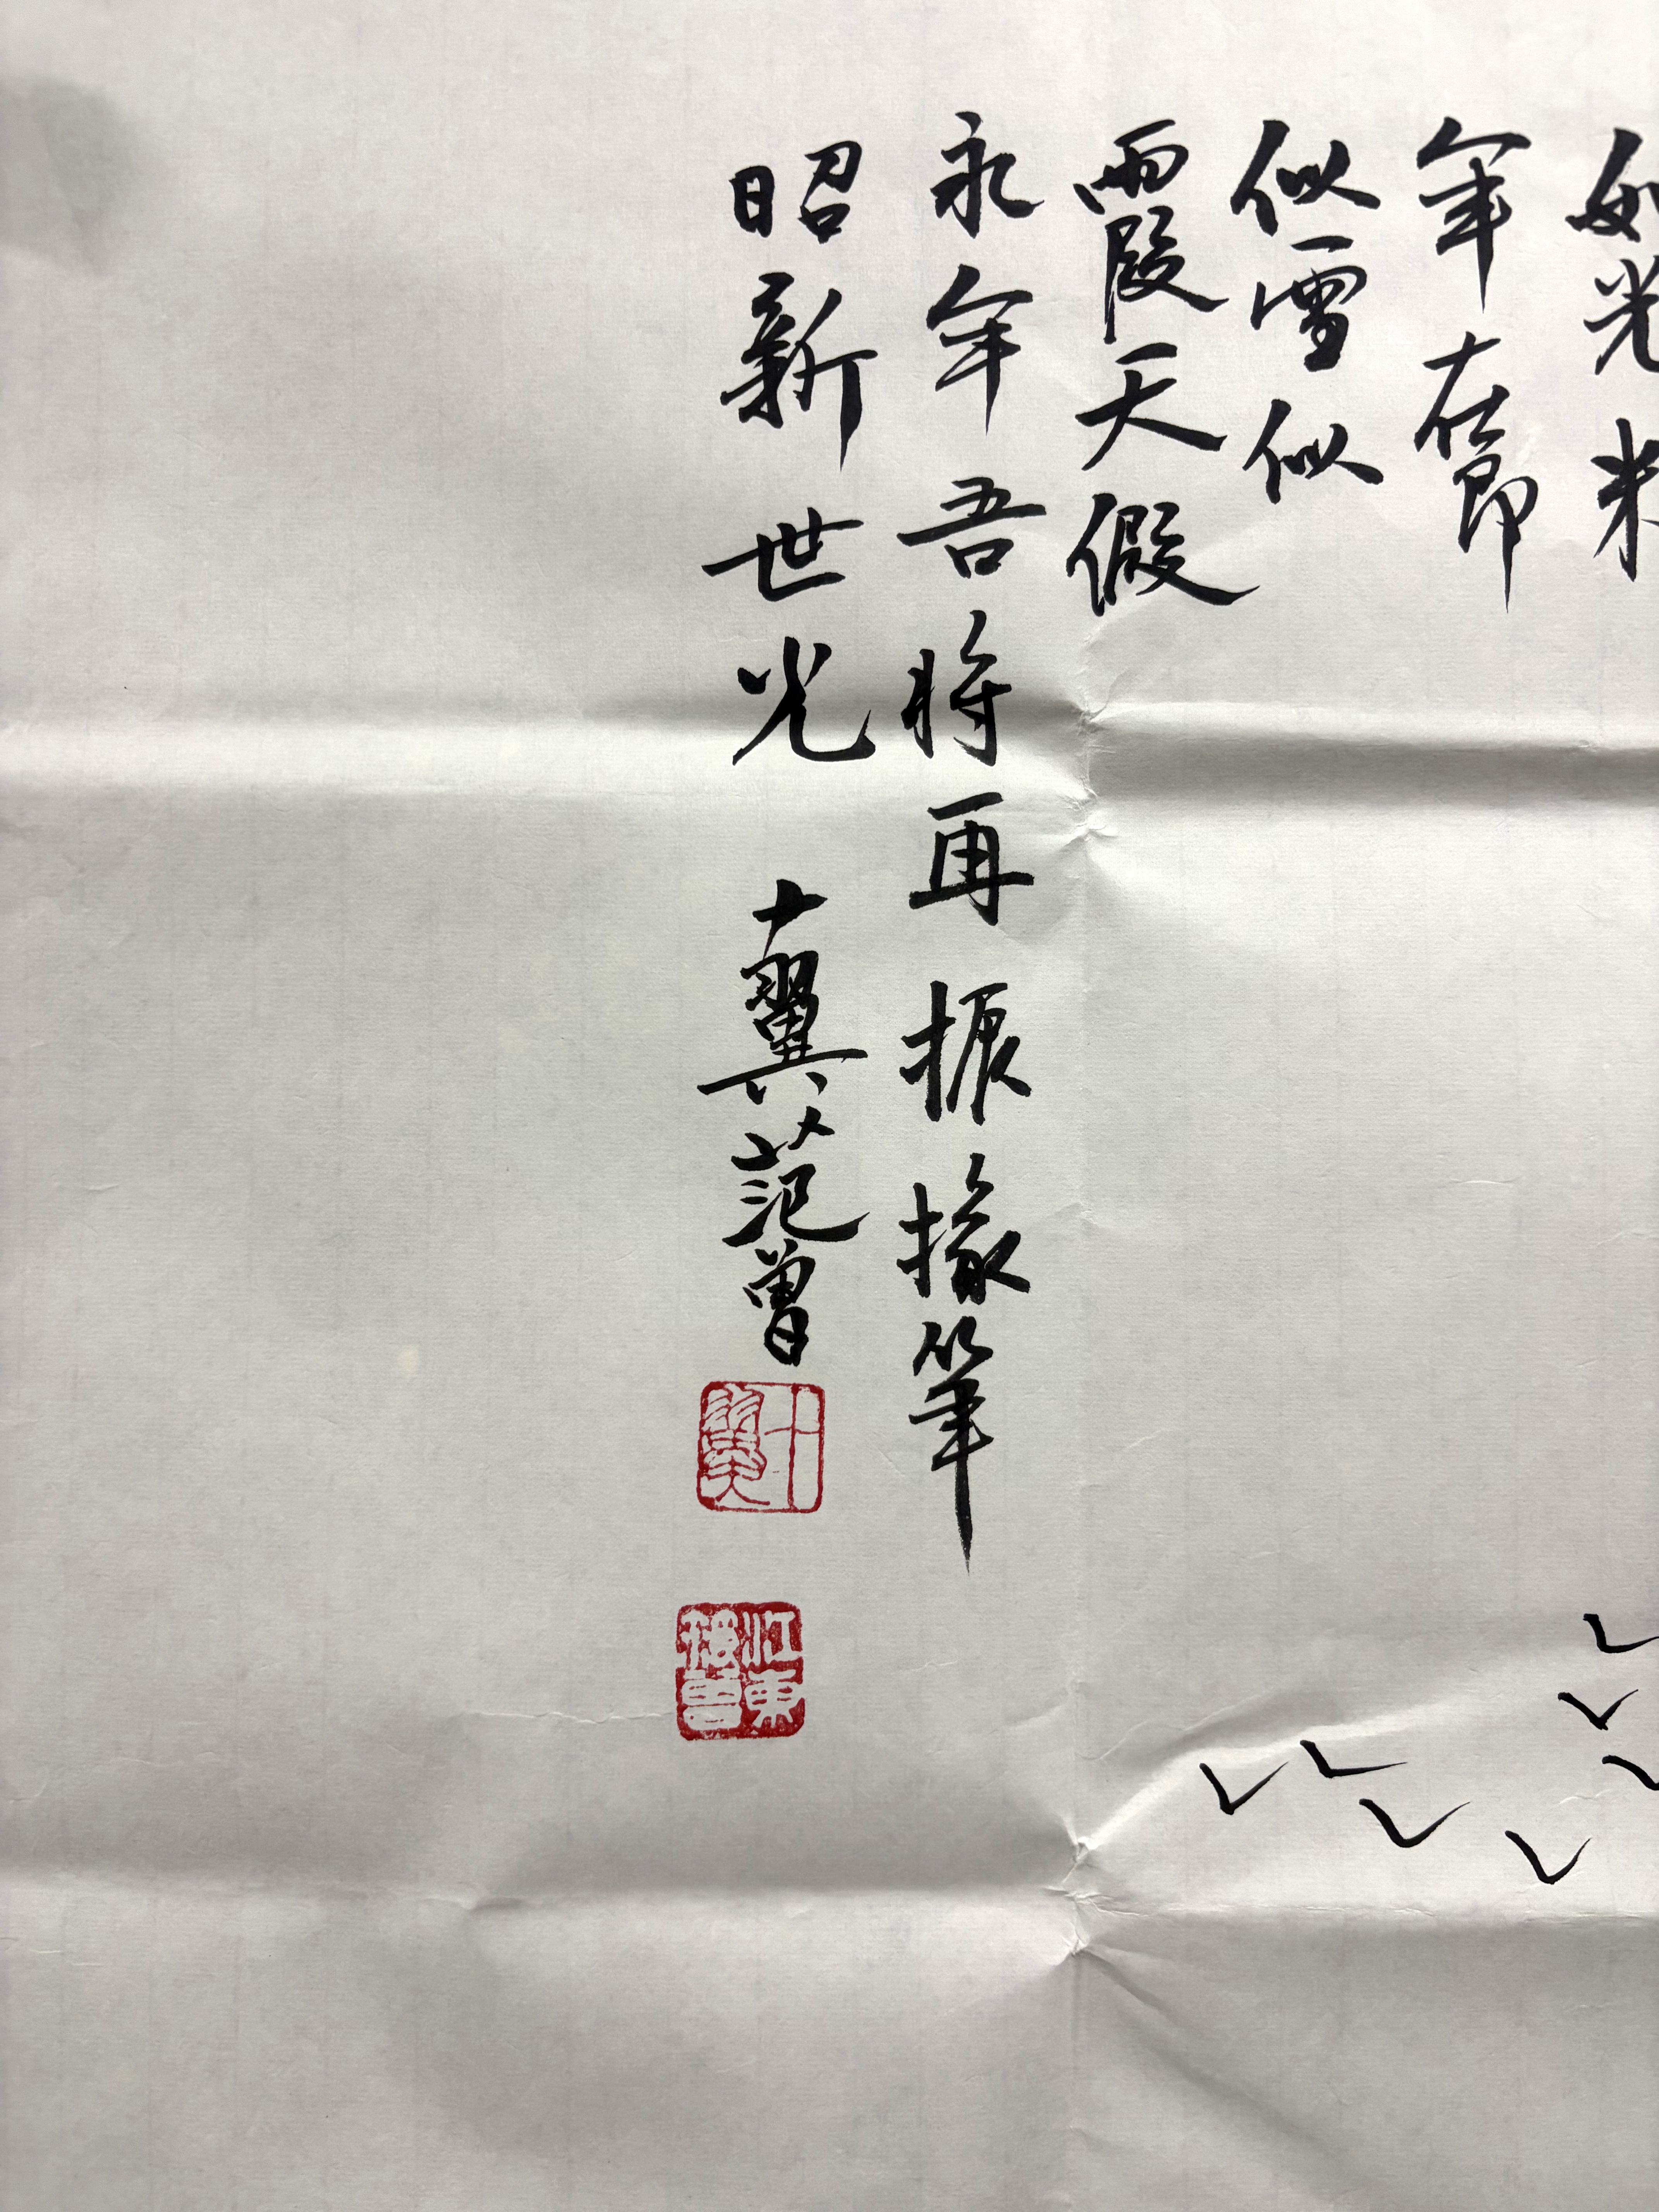 如光来
年在即
似雪似
霞天假
永年吾将再振掾筆
昭新世光 十翼范曾
十翼
江東范曾